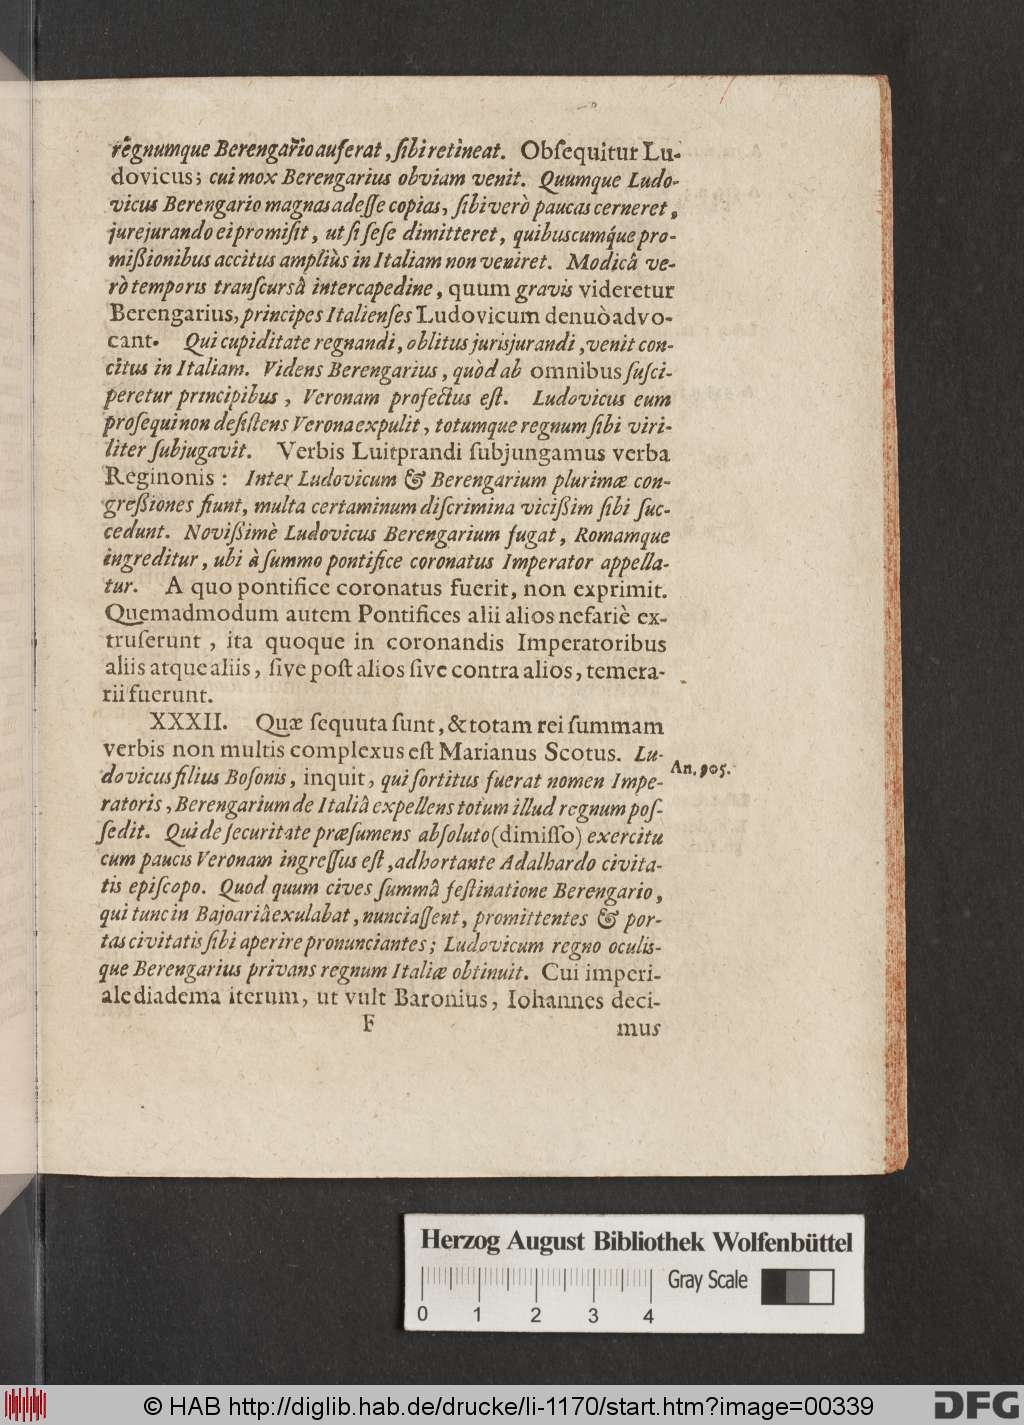 regnumque Berengario auferat, ſibi retineat. Obſequitur Lu-
dovicus; cui mox Berengarius obviam venit. Quumque Ludo-
vicus Berengario magnas adeſſe copias, ſibi verò paucas cerneret,
jurejurando ei promiſit, ut ſi ſeſe dimitteret, quibuscumq́ue pro-
mißionibus accitus ampliùs in Italiam non veniret. Modicâ ve-
rò temporis tranſcursâ intercapedine, quum gravis videretur
Berengarius, principes Italienſes Ludovicum denuò advo-
cant. Qui cupiditate regnandi, oblitus jurisjurandi, venit con-
citus in Italiam. Videns Berengarius, quòd ab omnibus ſuſci-
peretur principibus, Veronam profectus eſt. Ludovicus eum
proſequi non deſiſtens Verona expulit, totumque regnum ſibi viri-
liter ſubjugavit. Verbis Luitprandi ſubjungamus verba
Reginonis: Inter Ludovicum & Berengarium plurimæ con-
greßiones fiunt, multa certaminum diſcrimina vicißim ſibi ſuc-
cedunt. Novißimè Ludovicus Berengarium fugat, Romamque
ingreditur, ubi à ſummo pontifice coronatus Imperator appella-
tur. A quo pontifice coronatus fuerit, non exprimit.
Quemadmodum autem Pontifices alii alios nefariè ex-
truſerunt, ita quoque in coronandis Imperatoribus
aliis atque aliis, ſive poſt alios ſive contra alios, temera-
rii fuerunt.
XXXII. Quæ ſequuta ſunt, & totam rei ſummam
verbis non multis complexus eſt Marianus Scotus. Lu-
dovicus filius Boſonis, inquit, qui ſortitus fuerat nomen Impe-
An. 905.
ratoris, Berengarium de Italiâ expellens totum illud regnum poſ-
ſedit. Qui de ſecuritate præſumens abſoluto (dimiſſo) exercitu
cum paucis Veronam ingreſſus eſt, adhortante Adalhardo civita-
tis epiſcopo. Quod quum cives ſummâ feſtinatione Berengario,
qui tunc in Bajoariâ exulabat, nunciaſſent, promittentes & por-
tas civitatis ſibi aperire pronunciantes; Ludovicum regno oculis-
que Berengarius privans regnum Italiæ obtinuit. Cui imperi-
ale diadema iterum, ut vult Baronius, Iohannes deci-
F
mus
Herzog August Bibliothek Wolfenbüttel
Gray Scale
0 1 2 3 4
© HAB http://diglib.hab.de/drucke/li-1170/start.htm?image=00339
DFG